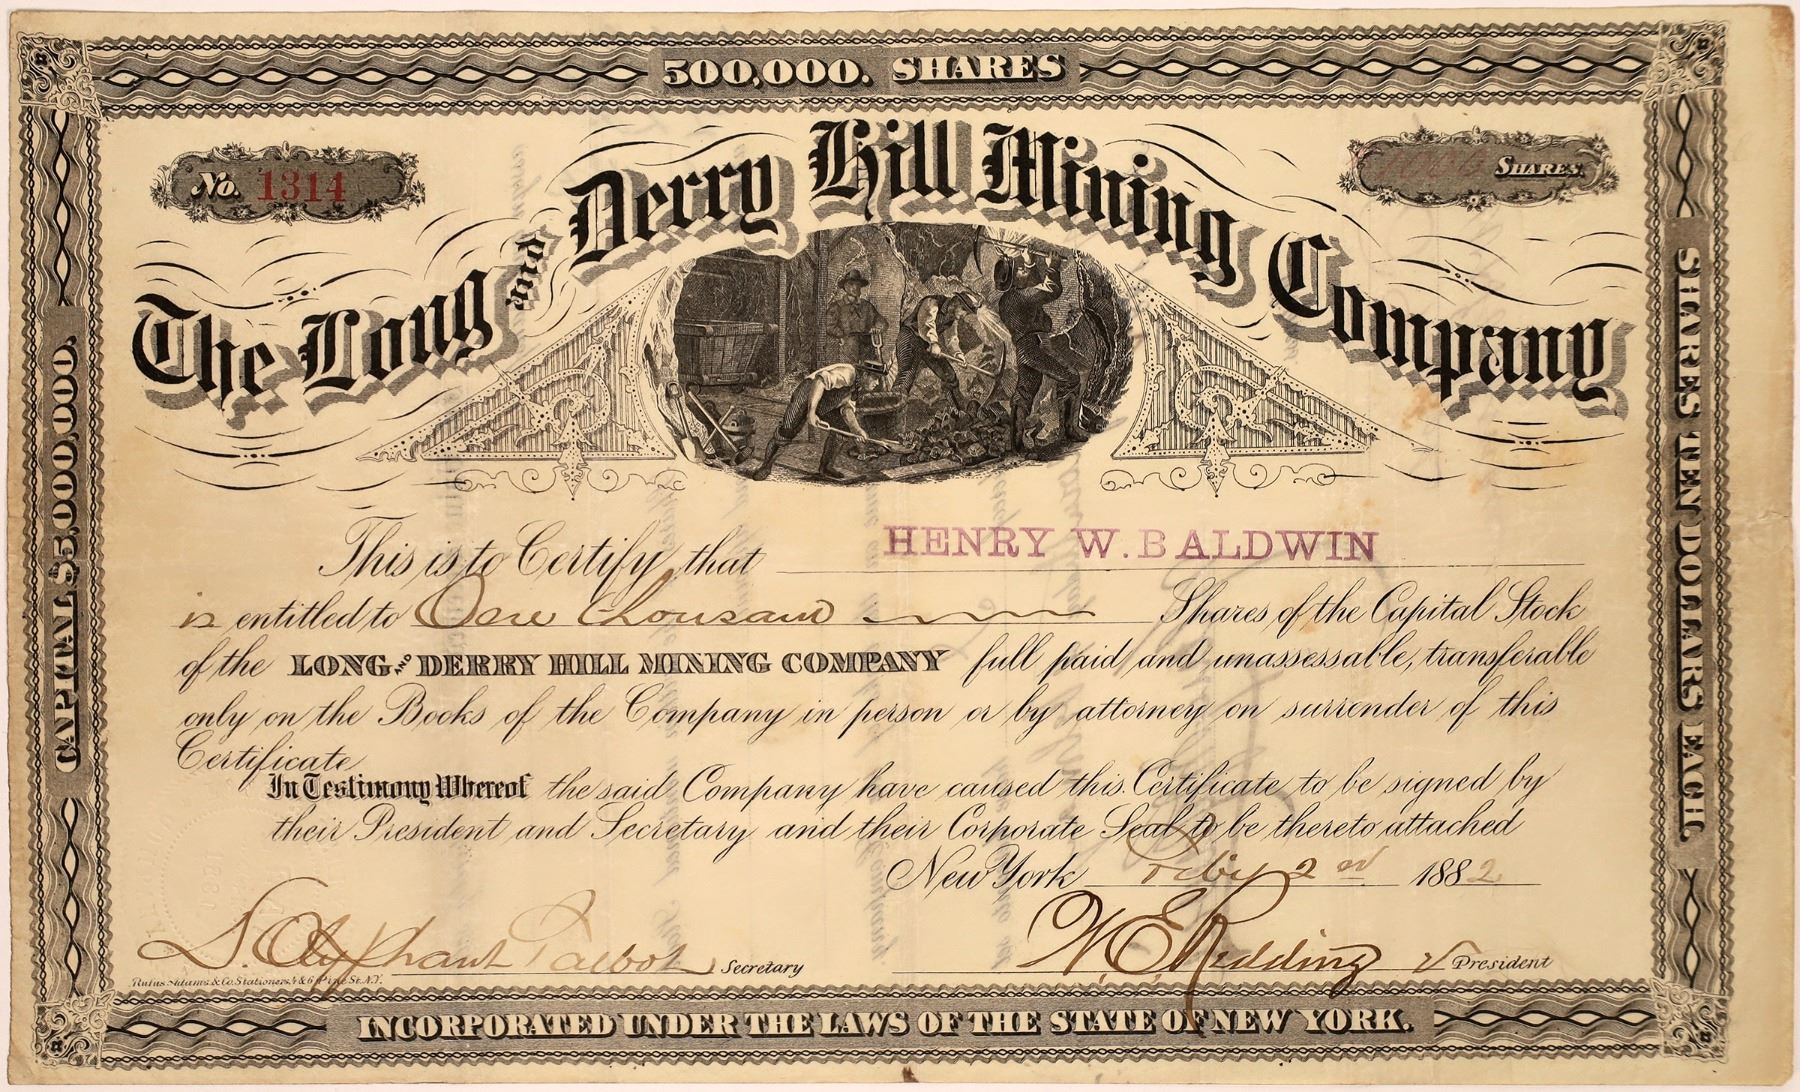 500,000. SHARES
No. 1314
1000 SHARES.
The Long and Derry Hill Mining Company
CAPITAL $5,000,000.
SHARES TEN DOLLARS EACH.
This is to Certify that HENRY W. BALDWIN
is entitled to One thousand Shares of the Capital Stock
of the LONG AND DERRY HILL MINING COMPANY full paid and unassessable, transferable
only on the Books of the Company in person or by attorney on surrender of this
Certificate
In Testimony Whereof the said Company have caused this Certificate to be signed by
their President and Secretary and their Corporate Seal to be thereto attached
New York Feby 2nd 1882
S. Olyphant Talbot Secretary
W. E. Redding V President
Rufus Adams & Co. Stationers, 4 & 6 Pine St. N.Y.
INCORPORATED UNDER THE LAWS OF THE STATE OF NEW YORK.